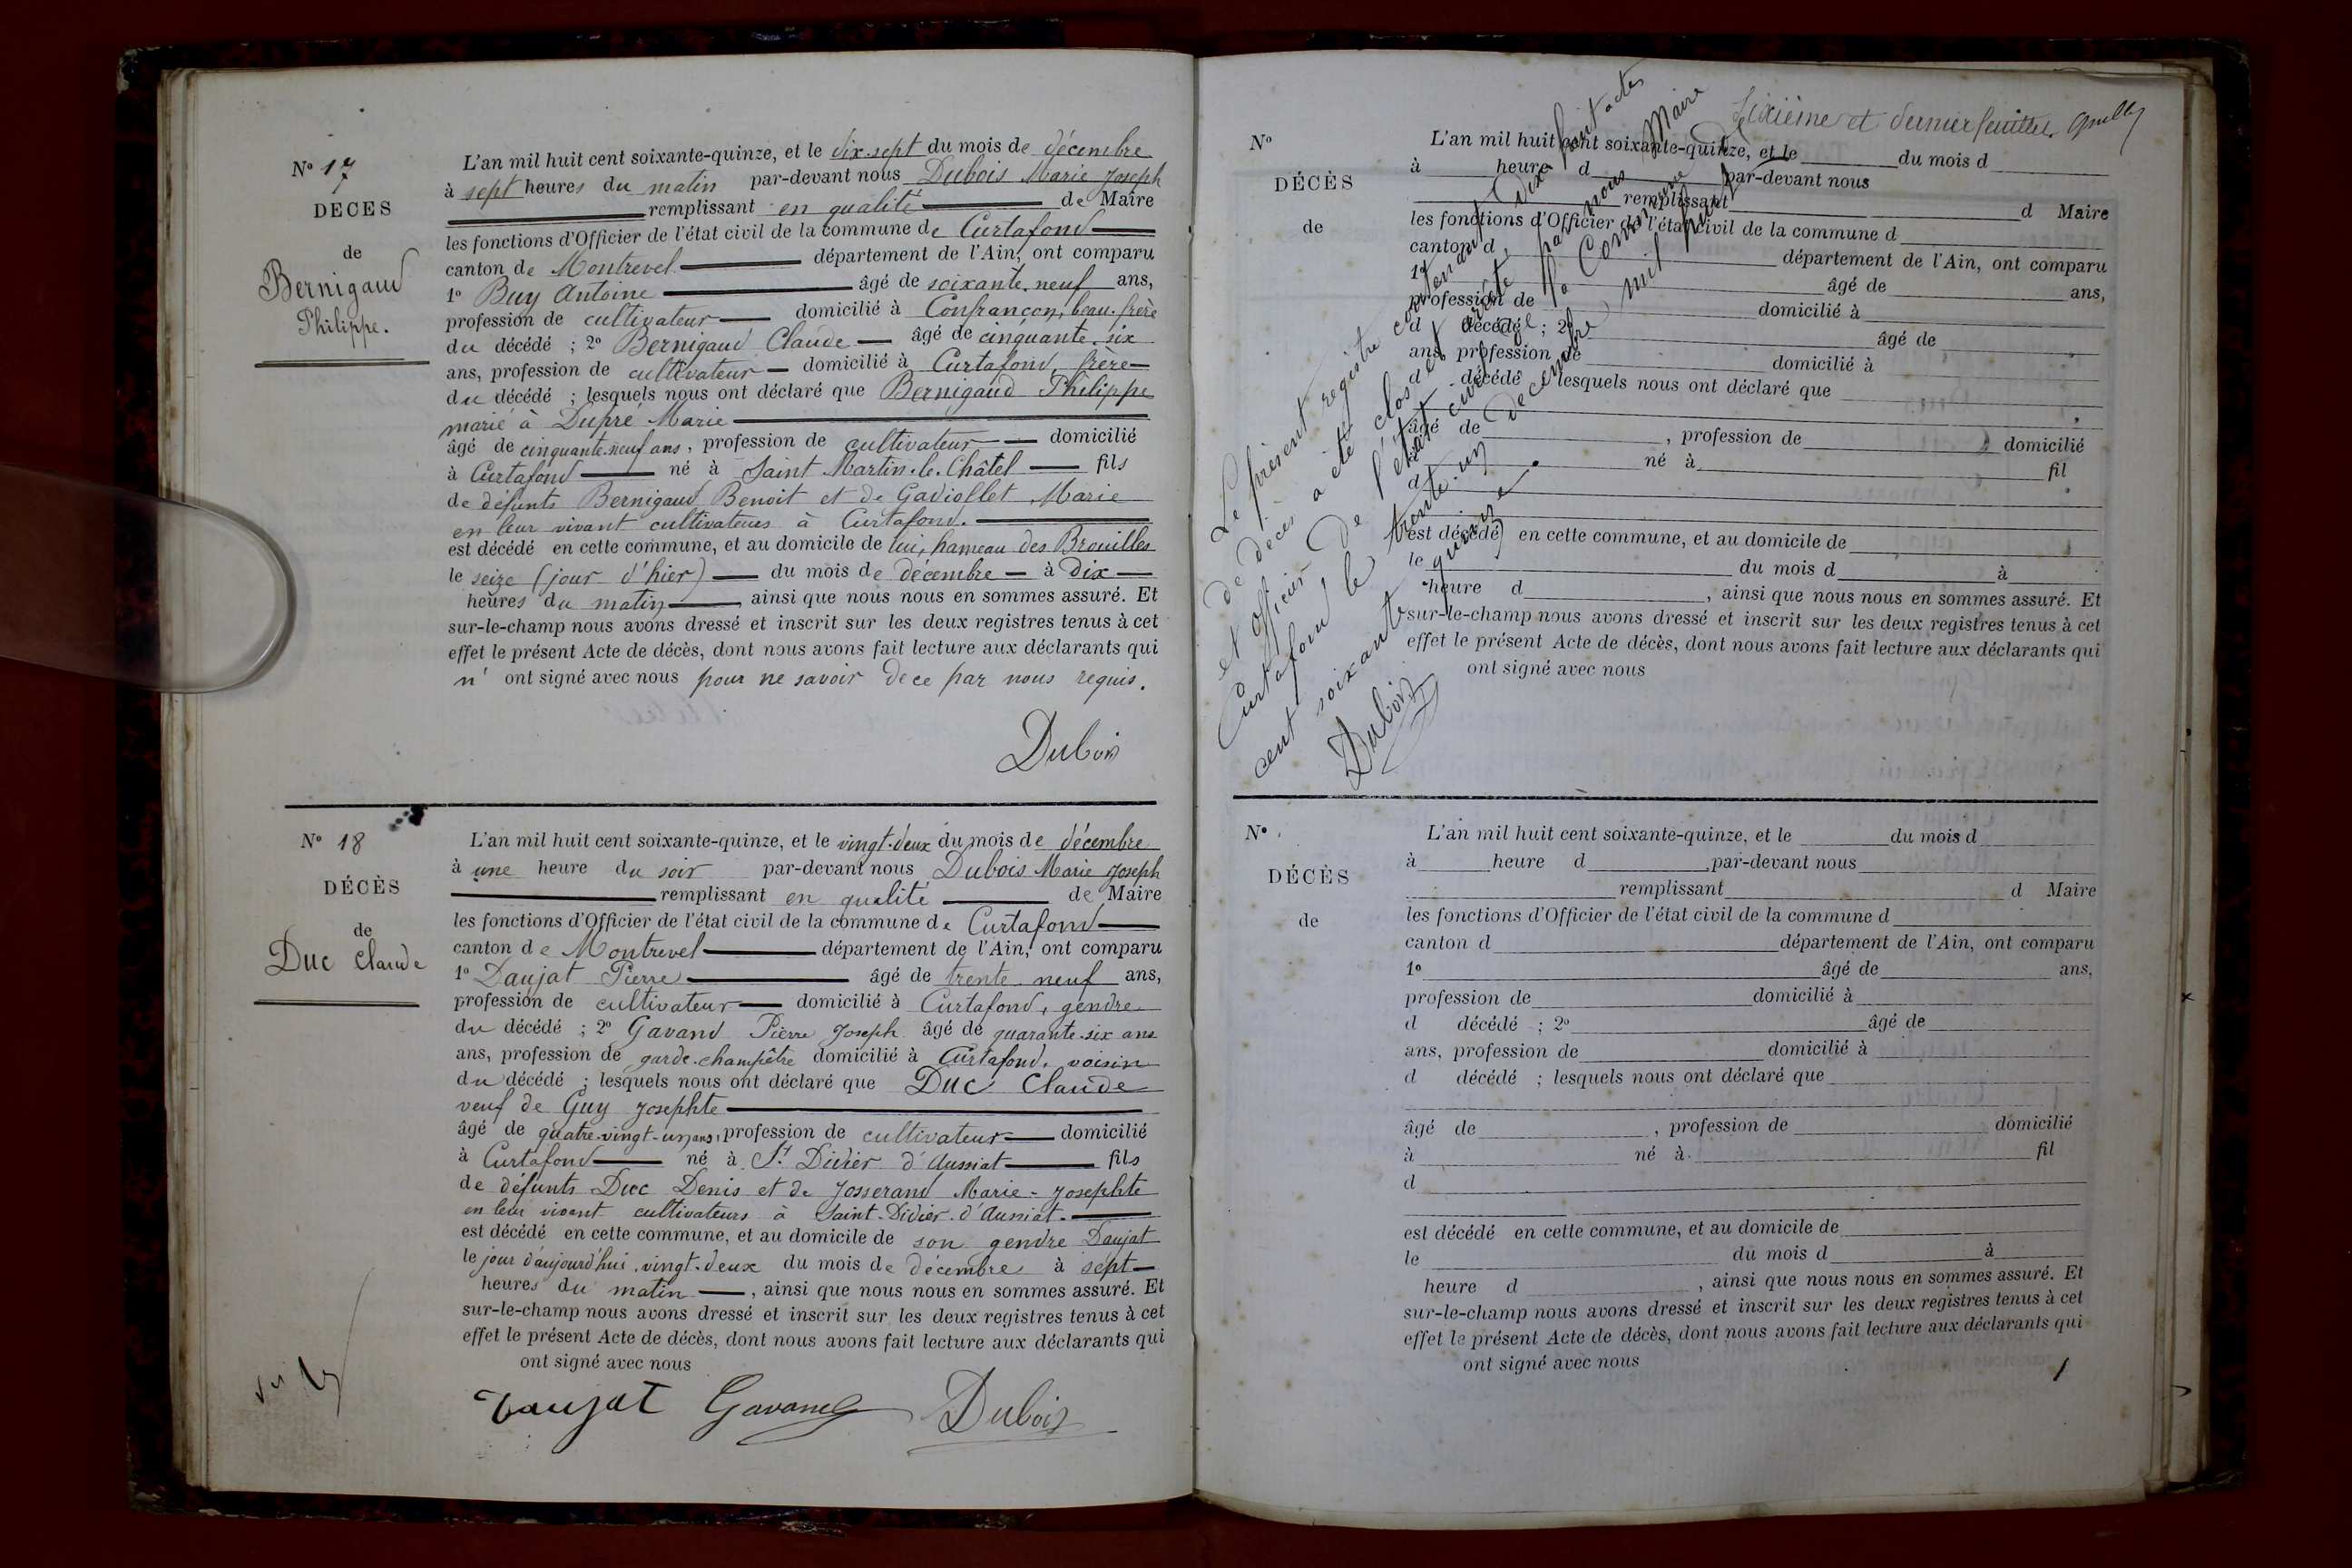 N° 17
DÉCÈS
de
Bernigaud
Philippe.
L'an mil huit cent soixante-quinze, et le dix-sept du mois de décembre
à sept heures du matin par-devant nous Dubois Marie Joseph
remplissant en qualité de Maire
les fonctions d'Officier de l'état civil de la commune de Curtafond
canton de Montrevel département de l'Ain, ont comparu
1° Buy Antoine âgé de soixante-neuf ans,
profession de cultivateur domicilié à Confrançon, beau-frère
du décédé ; 2° Bernigaud Claude âgé de cinquante-six
ans, profession de cultivateur domicilié à Curtafond, frère
du décédé ; lesquels nous ont déclaré que Bernigaud Philippe
marié à Dupré Marie
âgé de cinquante-neuf ans, profession de cultivateur domicilié
à Curtafond né à Saint-Martin-le-Châtel fils
de défunts Bernigaud Benoit et de Gadiollet Marie
en leur vivant cultivateurs à Curtafond.
est décédé en cette commune, et au domicile de lui, hameau des Brouilles
le seize (jour d'hier) du mois de décembre à dix
heures du matin, ainsi que nous nous en sommes assuré. Et
sur-le-champ nous avons dressé et inscrit sur les deux registres tenus à cet
effet le présent Acte de décès, dont nous avons fait lecture aux déclarants qui
n'ont signé avec nous pour ne savoir de ce par nous requis.
Dubois
N° 18
DÉCÈS
de
Duc Claude
L'an mil huit cent soixante-quinze, et le vingt-deux du mois de décembre
à une heure du soir par-devant nous Dubois Marie Joseph
remplissant en qualité de Maire
les fonctions d'Officier de l'état civil de la commune de Curtafond
canton de Montrevel département de l'Ain, ont comparu
1° Daujat Pierre âgé de trente neuf ans,
profession de cultivateur domicilié à Curtafond, gendre
du décédé ; 2° Gavand Pierre Joseph âgé de quarante-six ans
ans, profession de garde-champêtre domicilié à Curtafond, voisin
du décédé ; lesquels nous ont déclaré que Duc Claude
veuf de Guy Josephte
âgé de quatre-vingt-un ans, profession de cultivateur domicilié
à Curtafond né à St Didier d'Aussiat fils
de défunts Duc Denis et de Josserand Marie-Josephte
en leur vivant cultivateurs à Saint-Didier-d'Aussiat.
est décédé en cette commune, et au domicile de son gendre Daujat
le jour d'aujourd'hui vingt-deux du mois de décembre à sept
heures du matin, ainsi que nous nous en sommes assuré. Et
sur-le-champ nous avons dressé et inscrit sur les deux registres tenus à cet
effet le présent Acte de décès, dont nous avons fait lecture aux déclarants qui
ont signé avec nous
Daujat Gavand Dubois
Sixième et dernier feuillet.
Le présent registre contenant dix huit actes
de décès a été clos et arrêté par nous Maire
et officier de l'état civil de la Commune de
Curtafond, le trente-un décembre mil huit
cent soixante quinze.
Dubois
N°
DÉCÈS
de
L'an mil huit cent soixante-quinze, et le du mois d
à heure d par-devant nous
remplissant d Maire
les fonctions d'Officier de l'état civil de la commune d
canton d département de l'Ain, ont comparu
1° âgé de ans,
profession de domicilié à
d décédé ; 2° âgé de
ans, profession de domicilié à
d décédé lesquels nous ont déclaré que
âgé de , profession de domicilié
à né à fil
d
est décédé en cette commune, et au domicile de
le du mois d à
heure d , ainsi que nous nous en sommes assuré. Et
sur-le-champ nous avons dressé et inscrit sur les deux registres tenus à cet
effet le présent Acte de décès, dont nous avons fait lecture aux déclarants qui
ont signé avec nous
N°
DÉCÈS
de
L'an mil huit cent soixante-quinze, et le du mois d
à heure d par-devant nous
remplissant d Maire
les fonctions d'Officier de l'état civil de la commune d
canton d département de l'Ain, ont comparu
1° âgé de ans,
profession de domicilié à
d décédé ; 2° âgé de
ans, profession de domicilié à
d décédé ; lesquels nous ont déclaré que
âgé de , profession de domicilié
à né à fil
d
est décédé en cette commune, et au domicile de
le du mois d à
heure d , ainsi que nous nous en sommes assuré. Et
sur-le-champ nous avons dressé et inscrit sur les deux registres tenus à cet
effet le présent Acte de décès, dont nous avons fait lecture aux déclarants qui
ont signé avec nous